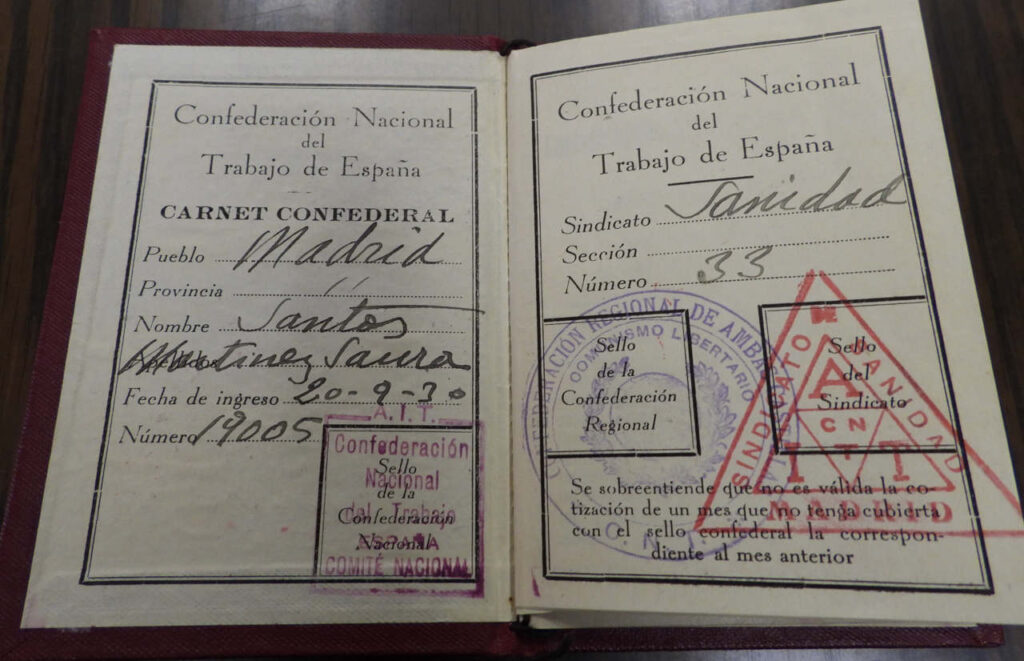 Confederación Nacional
del
Trabajo de España
CARNET CONFEDERAL
Pueblo Madrid
Provincia "
Nombre Santos
Martinez Saura
Fecha de ingreso 20-9-30
Número 19005
A.I.T.
Confederación
Nacional
del Trabajo
ESPAÑA
COMITÉ NACIONAL
Sello
de la
Confederación
Nacional
Confederación Nacional
del
Trabajo de España
Sindicato Sanidad
Sección
Número 33
CONFEDERACION REGIONAL DE
COMUNISMO LIBERTARIO
C.N.T.
Sello
de la
Confederación
Regional
SINDICATO DE SANIDAD
MADRID
A I T
CNT
Sello
del
Sindicato
Se sobreentiende que no es válida la co-
tización de un mes que no tenga cubierta
con el sello confederal la correspon-
diente al mes anterior